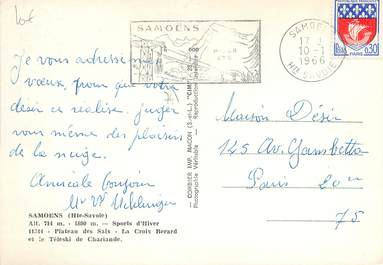 10€
SAMOENS
800
HIVER
ETE
SAMOENS
17 H
10-1
1966
HTE SAVOIE
REPUBLIQUE FRANÇAISE
0,30
PARIS
Je vous adresse mes
vœux, pour que votre
désir se réalise. juger
vous même des plaisirs
de la neige.
Amicale bonjour
Mr
SAMOENS (Hte-Savoie)
Alt. 714 m. - 1800 m. — Sports d'Hiver
- Plateau des Saix - La Croix Berard
et le Téléski de Chariande.
COMBIER IMP. MACON (S.-et-L.) "CIM"
Photographie Véritable - Reproduction
Maison Désir
145 Av. Gambetta
Paris 20e
75